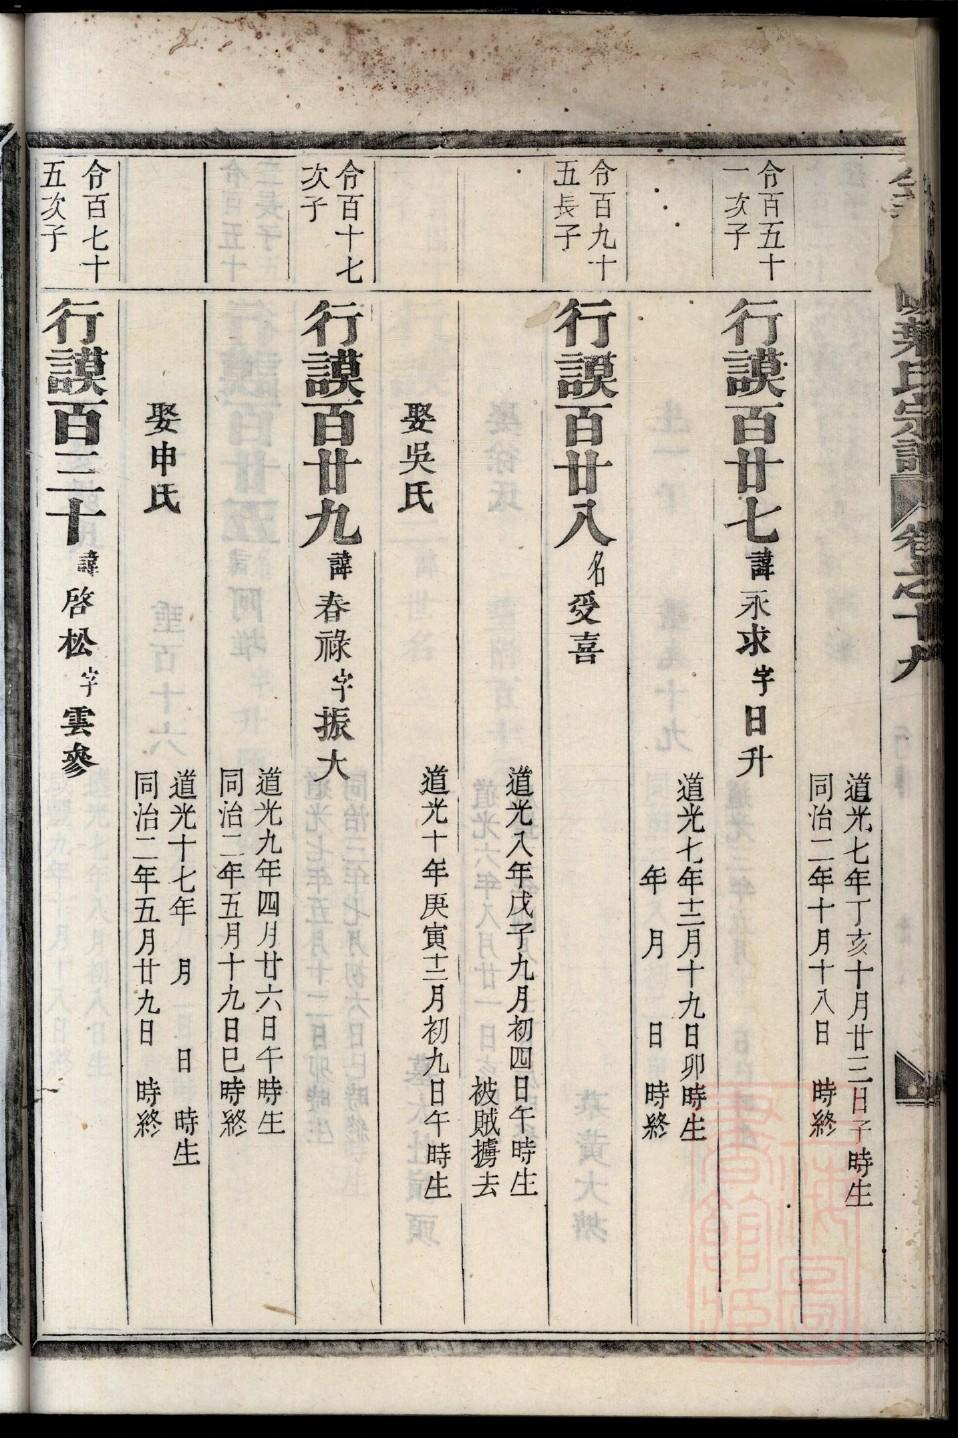 葉氏宗譜 卷之十九
道光七年丁亥十月廿三日子時生
同治二年十月十八日 時終
仒百五十
一次子
行謨百廿七 諱永求 字日升
道光七年十二月十九日卯時生
年 月 日 時終
仒百九十
五長子
行謨百廿八 名受喜
道光八年戊子九月初四日午時生
被賊擄去
娶吳氏
道光十年庚寅十二月初九日午時生
仒百十七
次子
行謨百廿九 諱春祿 字振大
道光九年四月廿六日午時生
同治二年五月十九日巳時終
娶申氏
道光十七年 月 日 時生
同治二年五月廿九日 時終
仒百七十
五次子
行謨百三十 諱啓松 字雲參